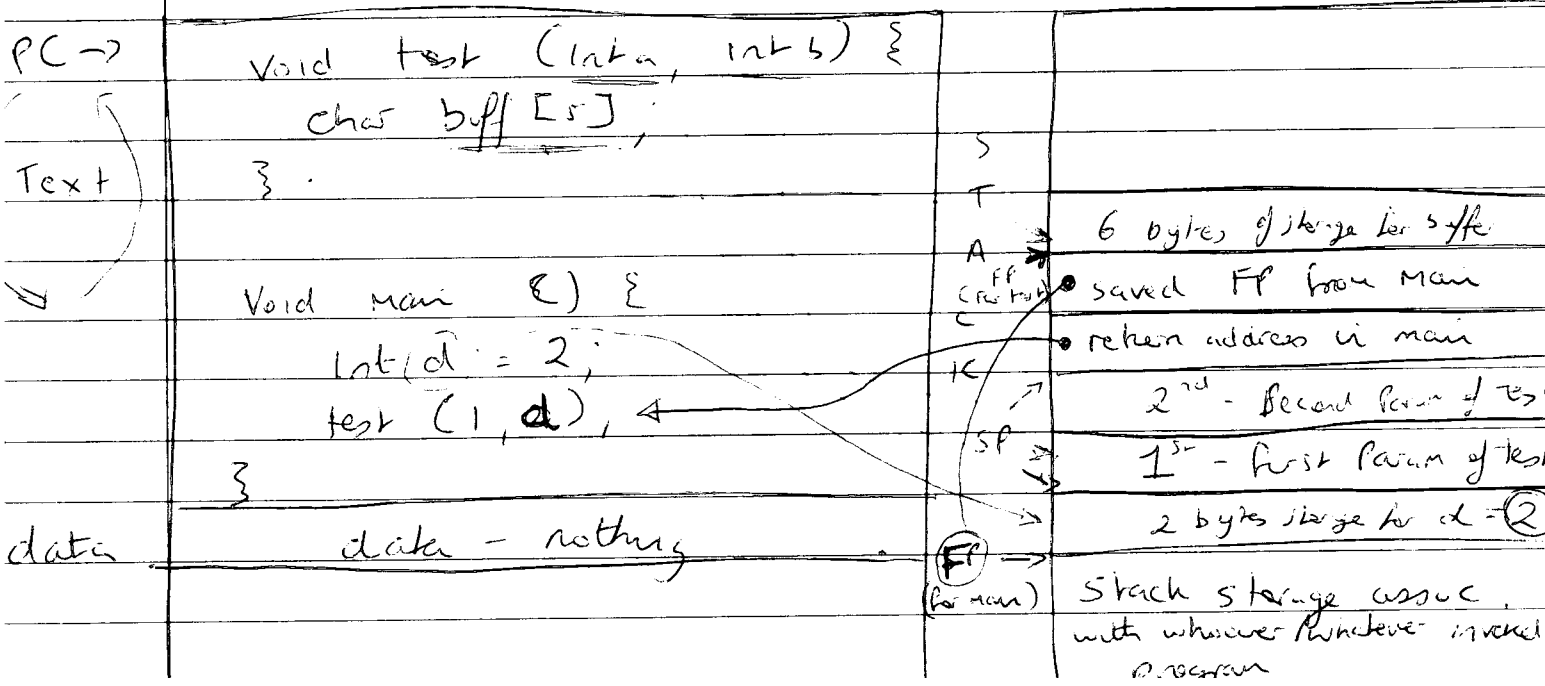 PC →
void test (int a, int b) {
char buff [5];
}
Text
void main () {
int d = 2;
test (1, d),
}
data
data - nothing
S
T
A
C
K
FP
(for test)
SP
FP
(for main)
6 bytes of storage for buffer
saved FP from Main
return address in main
2nd - Second Param of tes
1st - first Param of test
2 bytes storage for d = 2
Stack storage assoc.
with whoever/whatever invoked
program